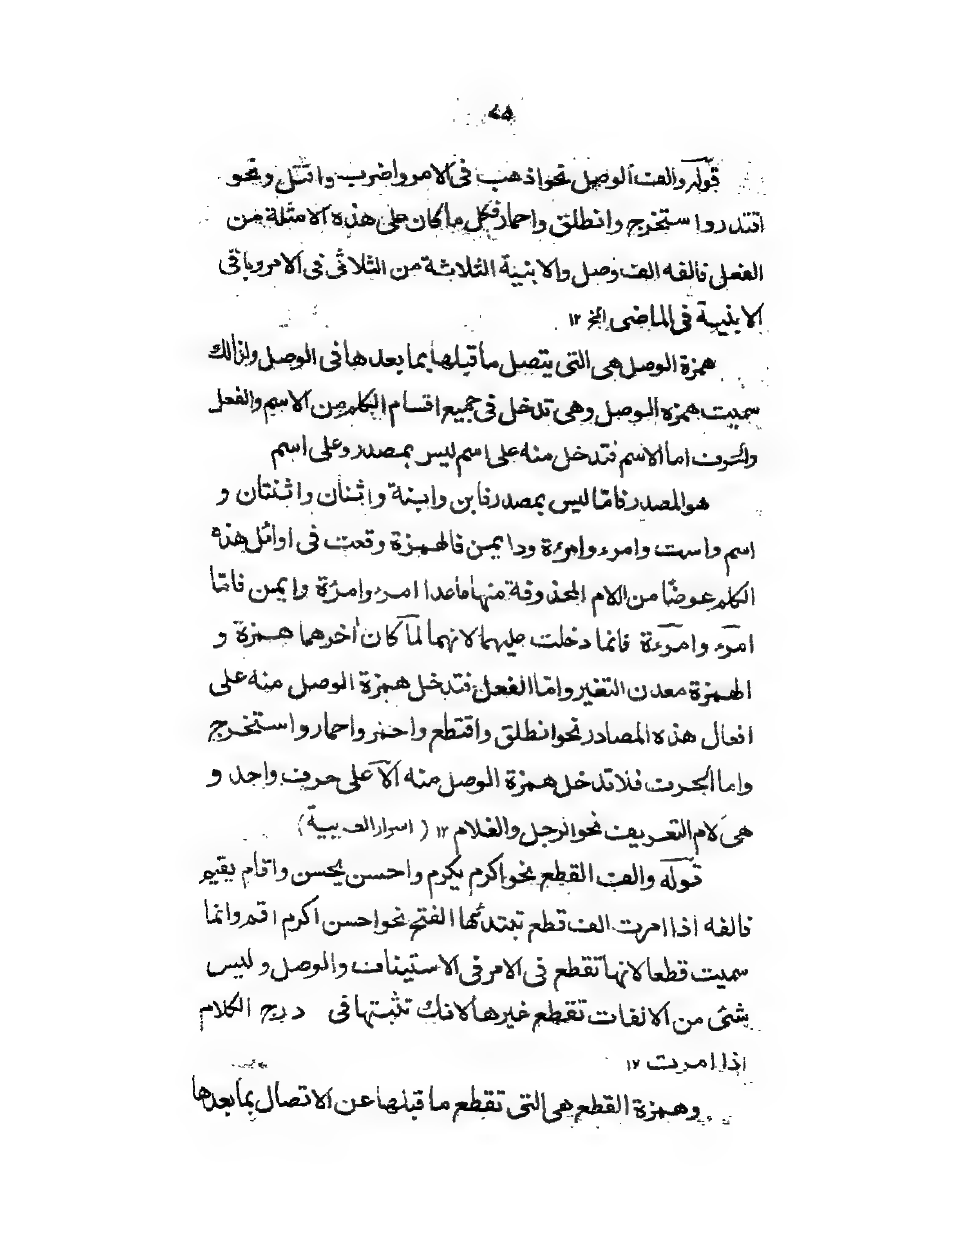 ۸۵
قوله والف الوصل نحو اذهب فى الامر واضرب واقتل ونحو
اقتدر واستخرج وانطلق واحمار فكل ما كان على هذه الامثلة من
الفعل فالفه الف وصل والابنية الثلاثة من الثلاثى فى الامر وباقى
الابنية فى الماضى الخ ۱۲
همزة الوصل هى التى يتصل ما قبلها بما بعدها فى الوصل ولذالك
سميت همزه الوصل وهى تدخل فى جميع اقسام الكلم من الاسم والفعل
والحرف اما الاسم فتدخل منه على اسم ليس بمصدر وعلى اسم
هو المصدر فاما ليس بمصدر فابن وابنة واثنان واثنتان و
اسم واست وامرء وامرءة وايمن فالهمزة وقعت فى اوائل هذه
الكلم عوضًا من اللام المحذوفة منها ماعدا امرء وامرءة وايمن فاما
امرء وامرءة فانما دخلت عليهما لانهما لما كان اٰخرهما همزة و
الهمزة معدن التغير واما الفعل فتدخل همزة الوصل منه على
افعال هذه المصادر نحو انطلق واقتطع واحمر واحمار واستخرج
واما الحرف فلا تدخل همزة الوصل منه الا على حرف واحد و
هى لام التعريف نحو الرجل والغلام ۱۲ (اسرار العربية)
قوله والف القطع نحو اكرم يكرم واحسن يحسن واقام يقيم
فالفه اذا امرت الف قطع تبتدئها الفتح نحو احسن اكرم اقم وانما
سميت قطعا لانها تقطع فى الامر فى الاستيناف والوصل و ليس
شئ من الالفات تقطع غيرها لانك تثبتها فى درج الكلام
اذا امرت ۱۲
وهمزة القطع هى التى تقطع ما قبلها عن الاتصال بما بعدها